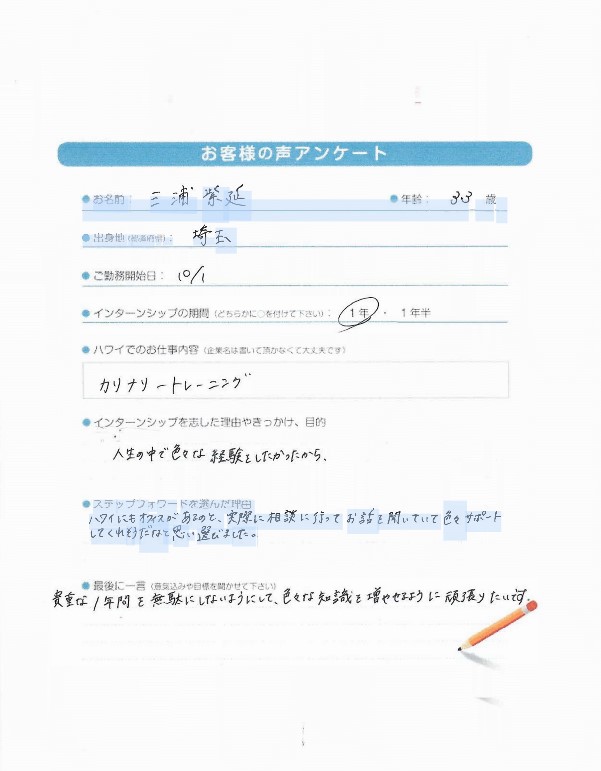 お客様の声アンケート
お名前： 三浦 紫延 年齢： 33 歳
出身地（都道府県）： 埼玉
ご勤務開始日： 10/1
インターンシップの期間（どちらかに○を付けて下さい）： 1年 ・ 1年半
ハワイでのお仕事内容（企業名は書いて頂かなくて大丈夫です）
カリナリートレーニング
インターンシップを志した理由やきっかけ、目的
人生の中で色々な経験をしたかったから、
ステップフォワードを選んだ理由
ハワイにもオフィスがあるのと、実際に相談に行ってお話を聞いていて色々サポート
してくれそうだなと思い選びました。
最後に一言（意気込みや目標を聞かせて下さい）
貴重な1年間を無駄にしないようにして、色々な知識を増やせるように頑張りたいです。